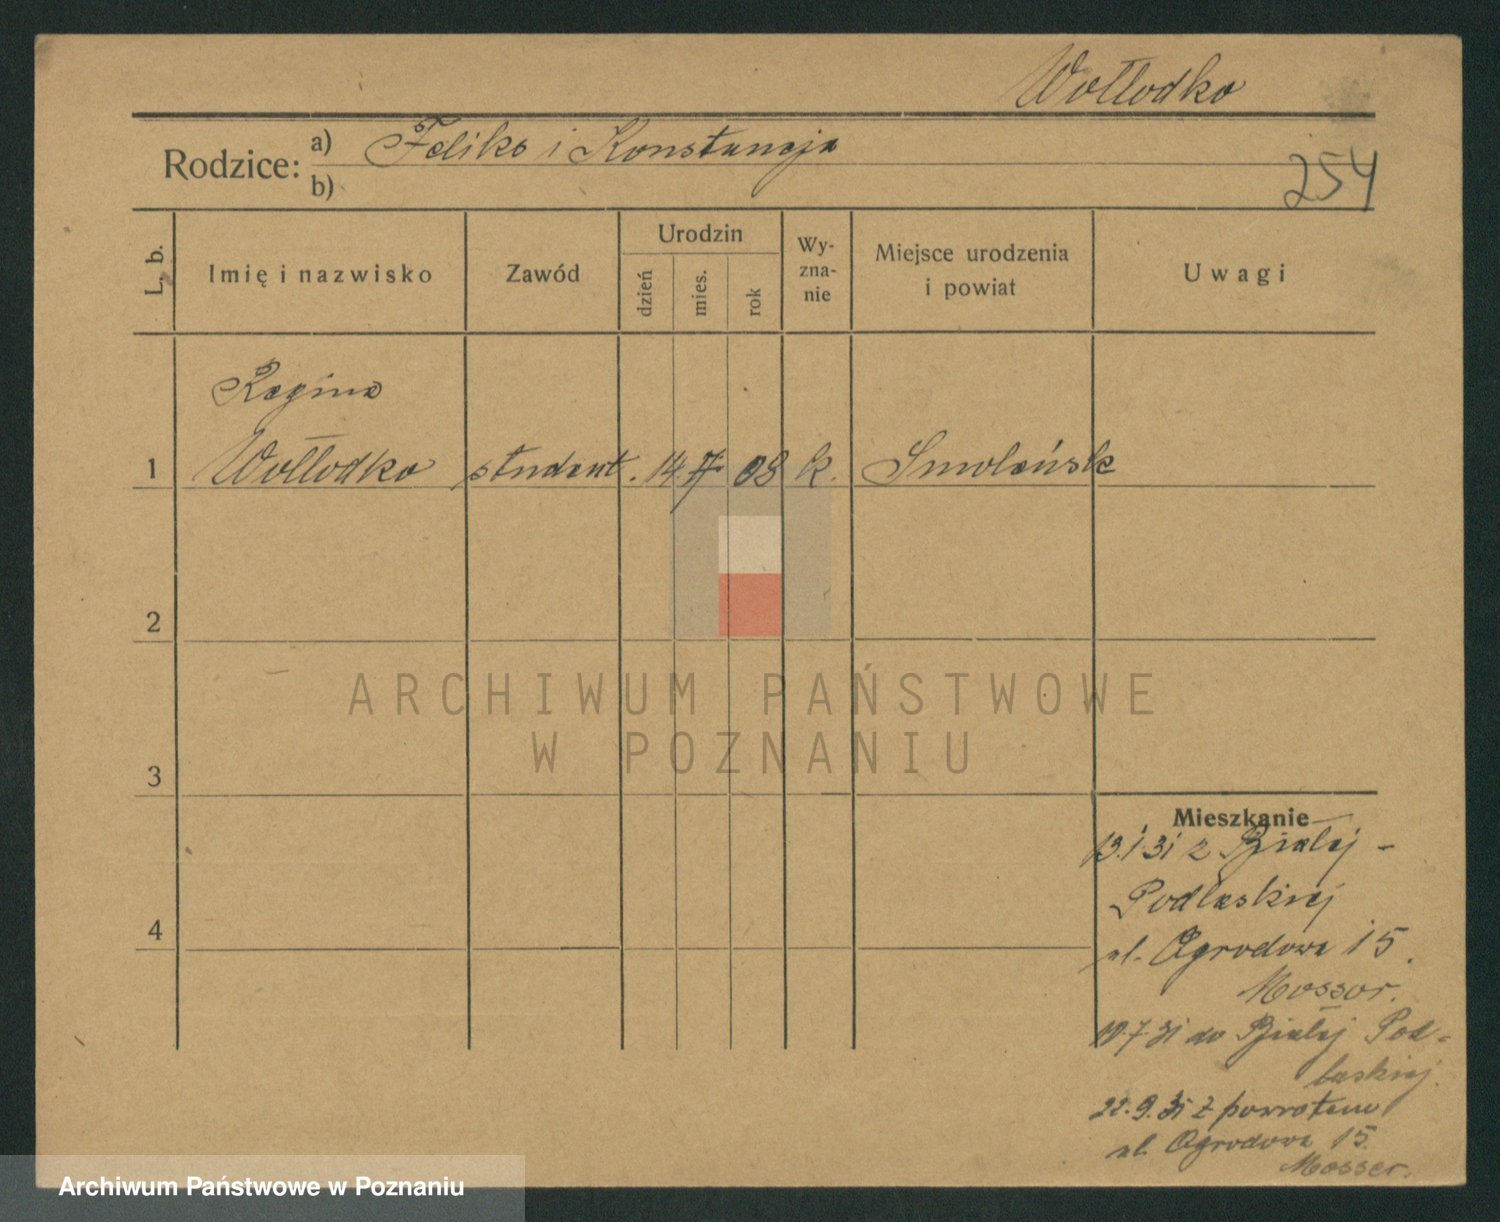 Wołłodko
Rodzice: a) Feliks i Konstancja
b)
254
L. b. Imię i nazwisko Zawód Urodzin dzień mies. rok Wy-zna-nie Miejsce urodzenia i powiat Uwagi
Regina
1 Wołłodko student. 14 7 08 k. Smoleńsk
2
ARCHIWUM PAŃSTWOWE
W POZNANIU
3
Mieszkanie
13.1.31 z Białej -
Podlaskiej
4
ul. Ogrodowa 15.
Mosser.
10.7.31 do Białej Pod-
laskiej.
22.9.31 z powrotem
ul. Ogrodowa 15.
Mosser.
Archiwum Państwowe w Poznaniu